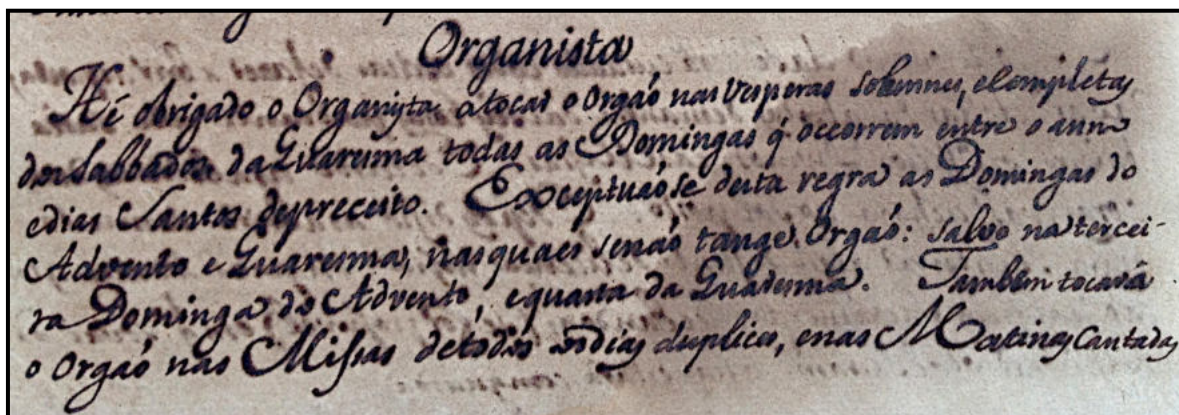 Organista
Hé obrigado o Organista a tocar o Orgaõ nas Vesperas Solemnes, e Completas
dos Sabbados da Quaresma todas as Domingas q̃ occorrem entre o anno
e dias Santos de preceito. Exceptuaõ se desta regra as Domingas do
Advento e Quaresma, nas quaes se naõ tange Orgaõ: salvo na tercei-
ra Dominga do Advento, e quarta da Quaresma. Tambem tocará
o Orgaõ nas Missas de todos os dias duplices, e nas Matinas Cantadas